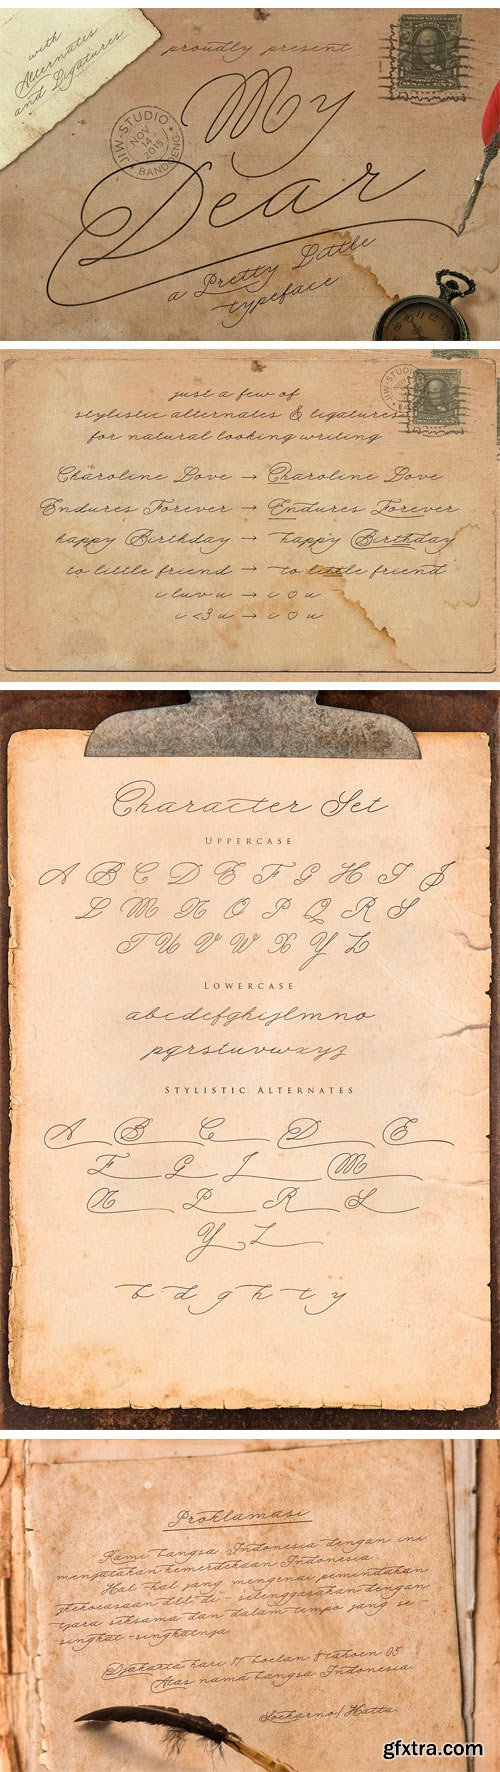 with
Alternates
and Ligatures
proudly present
My
Dear
JIW-STUDIO
NOV
14
2015
BANDUNG
a Pretty Little
typeface
just a few of
stylistic alternates & ligatures
for natural looking writing
Charoline Love → Charoline Love
Endures Forever → Endures Forever
happy Birthday → happy Birthday
to little friend → to little friend
i luv u → i ♡ u
i <3 u → i ♡ u
Character Set
UPPERCASE
A B C D E F G H I J
L M N O P Q R S
T U V W X Y Z
LOWERCASE
abcdefghijlmno
pqrstuvwxyz
STYLISTIC ALTERNATES
A B C D E
F G J M
N P R S
Y Z
b d g h t y
Proklamasi
Kami bangsa Indonesia dengan ini
menjatakan kemerdekaan Indonesia.
Hal-hal jang mengenai pemindahan
kekoeasaan d.l.l. di-selenggarakan dengan
tjara seksama dan dalam tempo jang se-
singkat-singkatnja.
Djakarta hari 17 boelan 8 tahoen 05
Atas nama bangsa Indonesia.
Soekarno/Hatta.
gfxtra.com